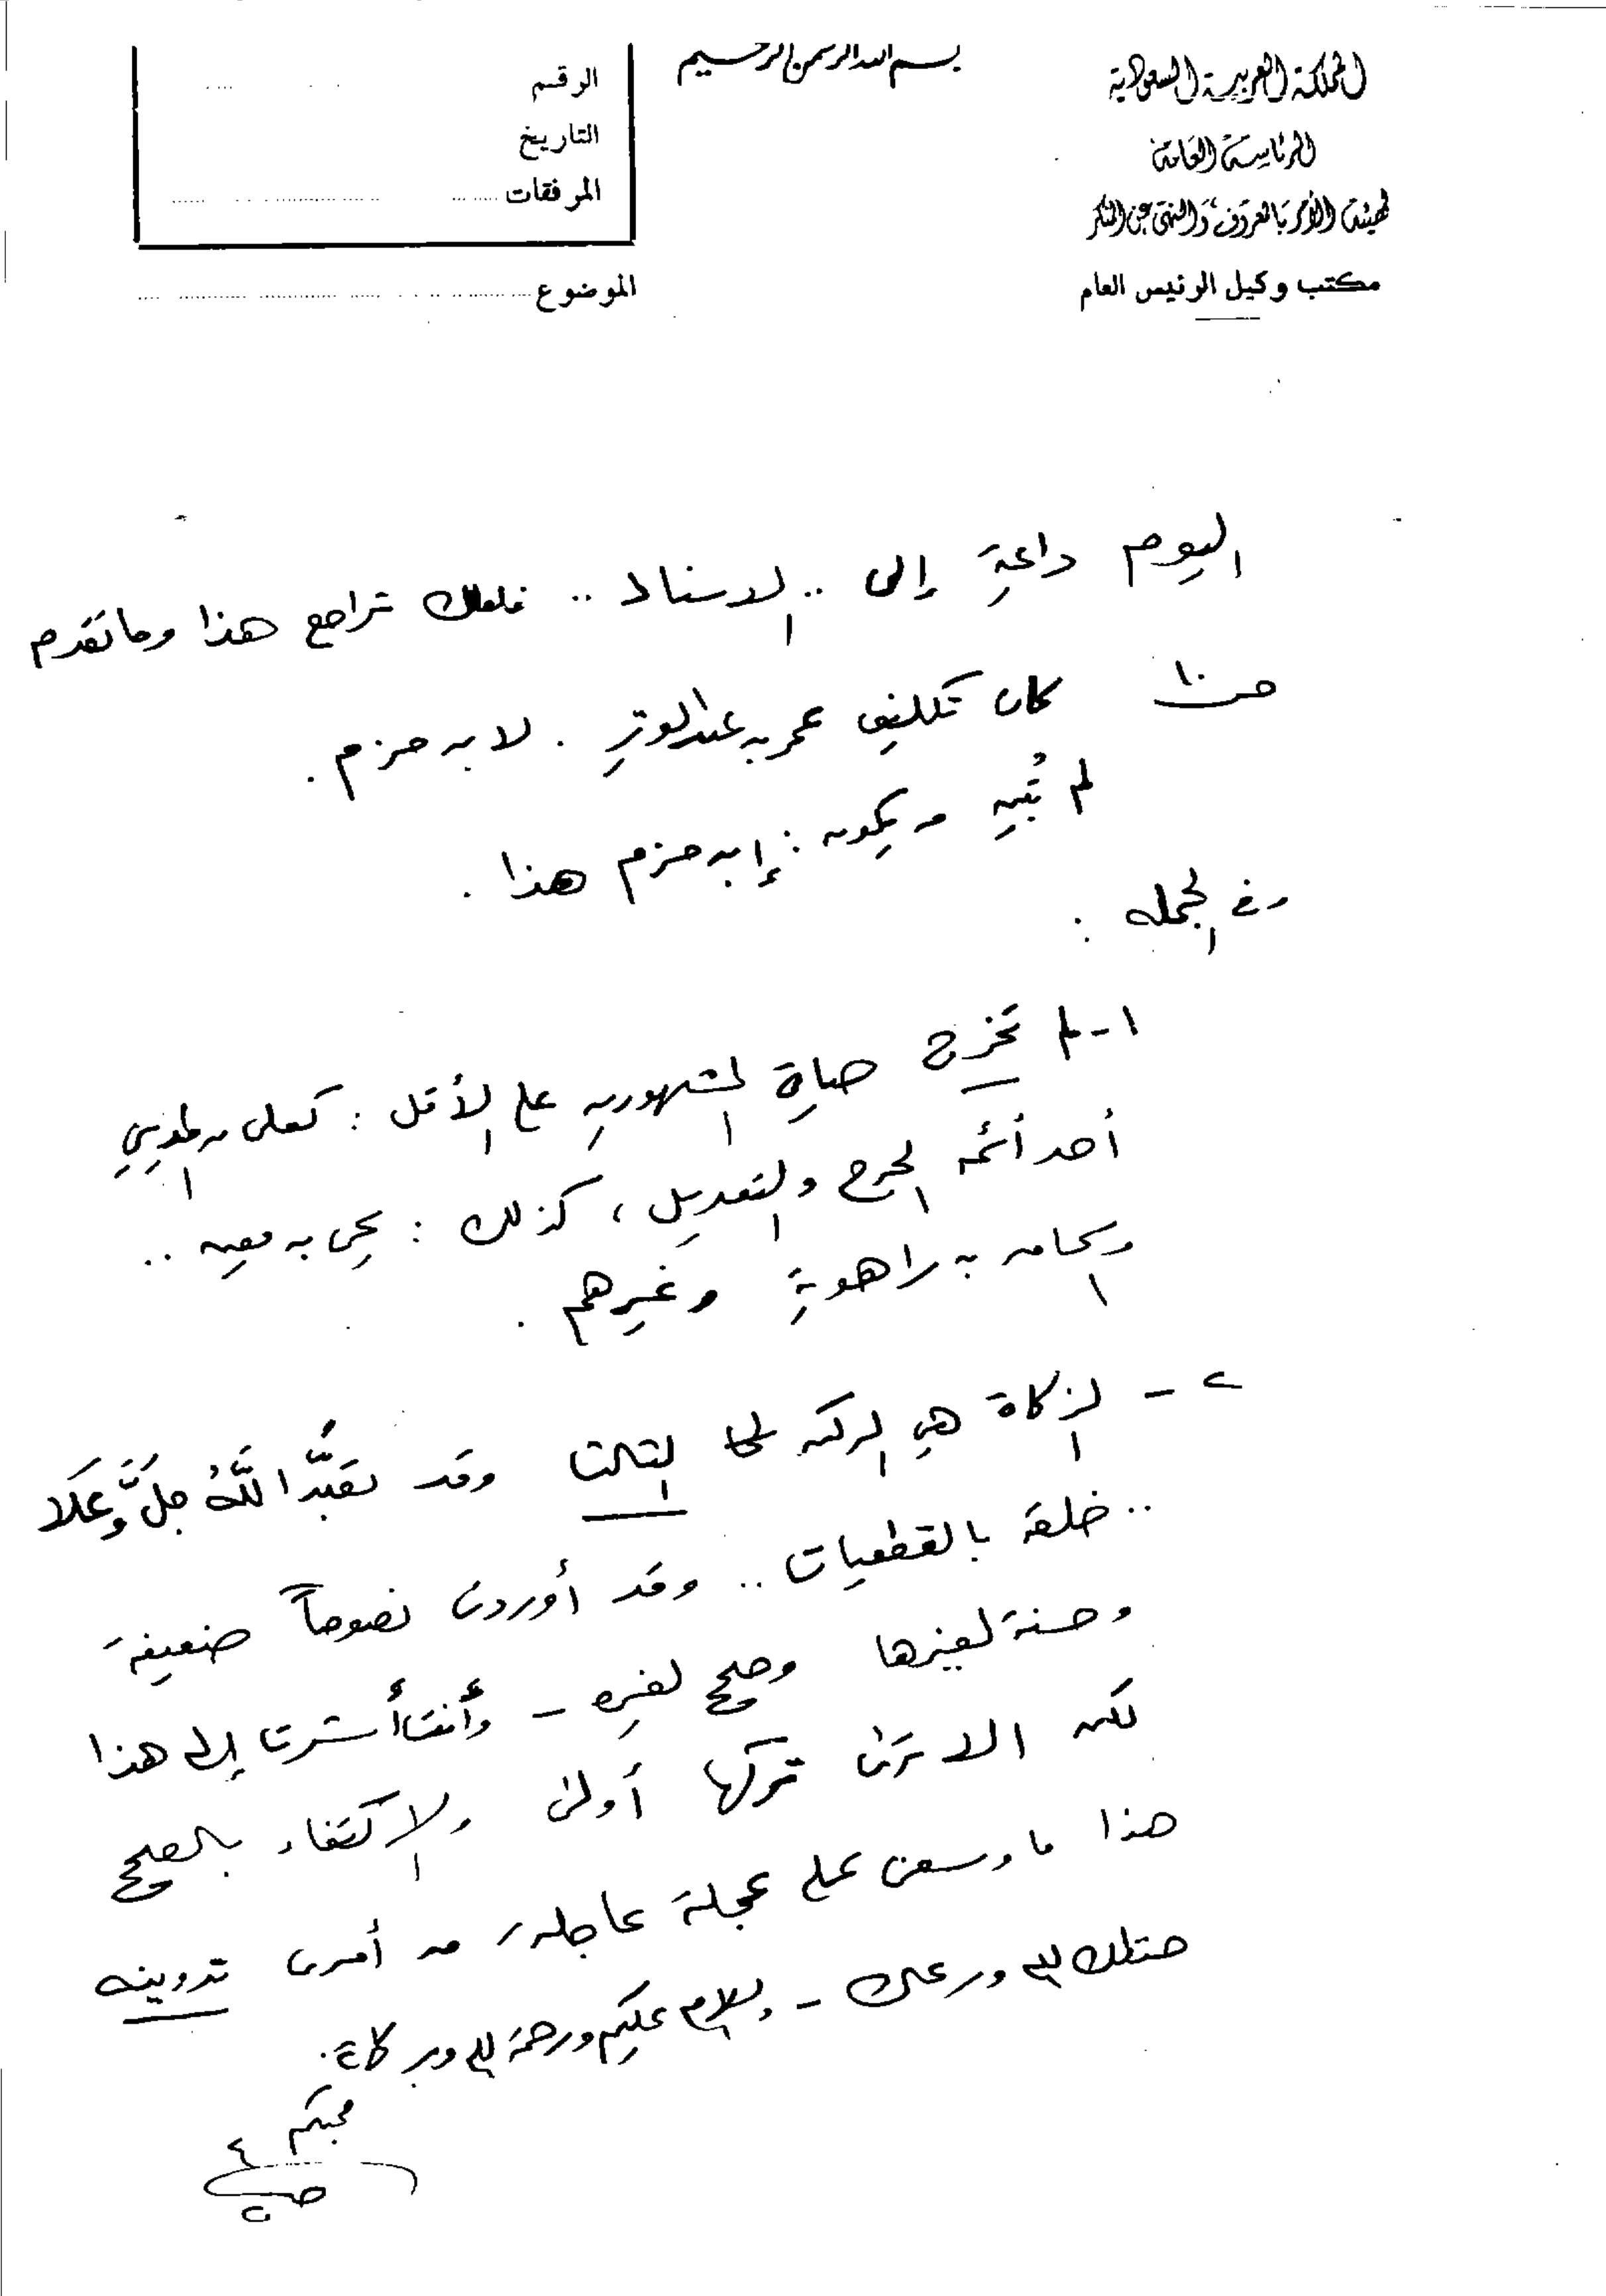 بسم الله الرحمن الرحيم
المملكة العربية السعودية
الرئاسة العامة
لهيئة الأمر بالمعروف والنهي عن المنكر
مكتب وكيل الرئيس العام
الرقم
التاريخ
المرفقات
الموضوع
اليوم داعية إلى .. الاسناد .. فلعلك تراجع هذا وما تقدم
ص ١٠ كان تكليف عمر بن عبد العزيز . لابن حزم .
لم تُبين من يكون : إبن حزم هذا .
وفي الجمله :
١- لم تخرج حياة المشهورين على الأقل : كعلى بن المديني
أحد أئمة الجرح والتعديل ، كذلك : يحى بن معين ..
وإسحاق بن راهوية وغيرهم .
٢ - الزكاة هي الركن الثالث وقد تعبَّد اللَّهُ جلَّ وَعَلا
.. خلقه بالقطعيات .. وقد أوردت نصوصاً ضعيفة
وحسنة لغيرها وصحيح لغيره - وأنت أشرت إلى هذا
لكن الا ترى تركها أولى والاكتفاء بالصحيح
هذا ما وسعني على عجلة عاجلة من أمرى تدوينه
حفظك الله ورعاك - والسلام عليكم ورحمة الله وبركاته .
محبكم